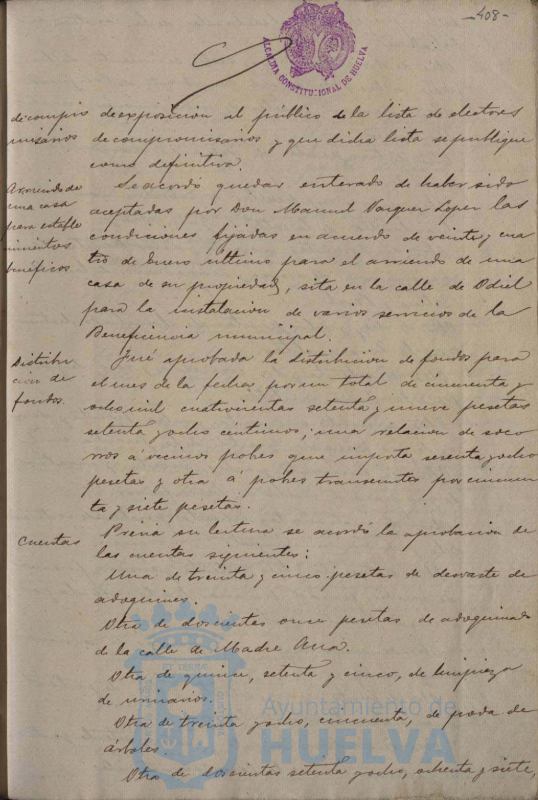 -408-
ALCALDIA CONSTITUCIONAL DE HUELVA
de compro
misarios
de exposición al público de la lista de electores
de compromisarios y que dicha lista se publique
como definitiva.
Arriendo de
una casa
para estable
cimientos
benéficos
Se acordó quedar enterado de haber sido
aceptadas por Don Manuel Vazquez Lopez las
condiciones fijadas en acuerdo de veinte y cua
tro de Enero último para el arriendo de una
casa de su propiedad, sita en la calle de Odiel
para la instalacion de varios servicios de la
Beneficencia municipal.
Distribu
cion de
fondos.
Fué aprobada la distribucion de fondos para
el mes de la fecha, por un total de cincuenta y
ocho mil cuatrocientas setenta y nueve pesetas
setenta y ocho céntimos; una relacion de soco
rros á vecinos pobres que importa sesenta y ocho
pesetas y otra á pobres transeuntes por cincuen
ta y siete pesetas.
Cuentas
Previa su lectura se acordó la aprobacion de
las cuentas siguientes:
Una de treinta y cinco pesetas de desvaste de
adoquines.
Otra de doscientas once pesetas de adoquinado
de la calle de Madre Ana.
Otra de quince, setenta y cinco, de limpieza
de urinarios.
Otra de treinta y ocho, cincuenta, de poda de
árboles.
Otra de doscientas setenta y ocho, ochenta y siete,
Ayuntamiento de
HUELVA